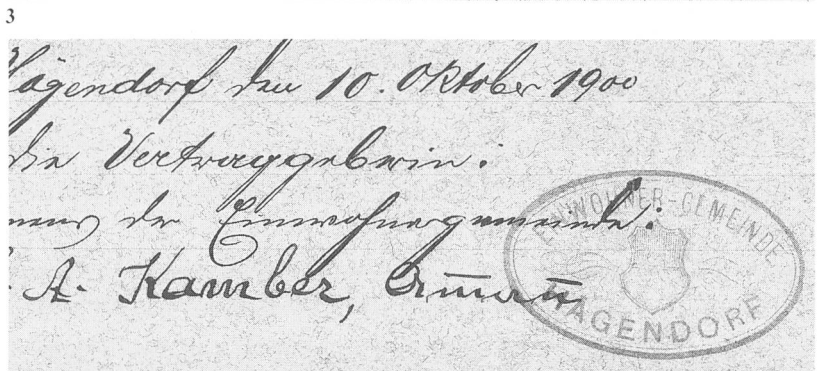 3
Hägendorf den 10. Oktober 1900
die Vertraggeberin:
mens der Einwohnergemeinde:
A. Kamber, Am̅an̅
EINWOHNER-GEMEINDE
HÄGENDORF